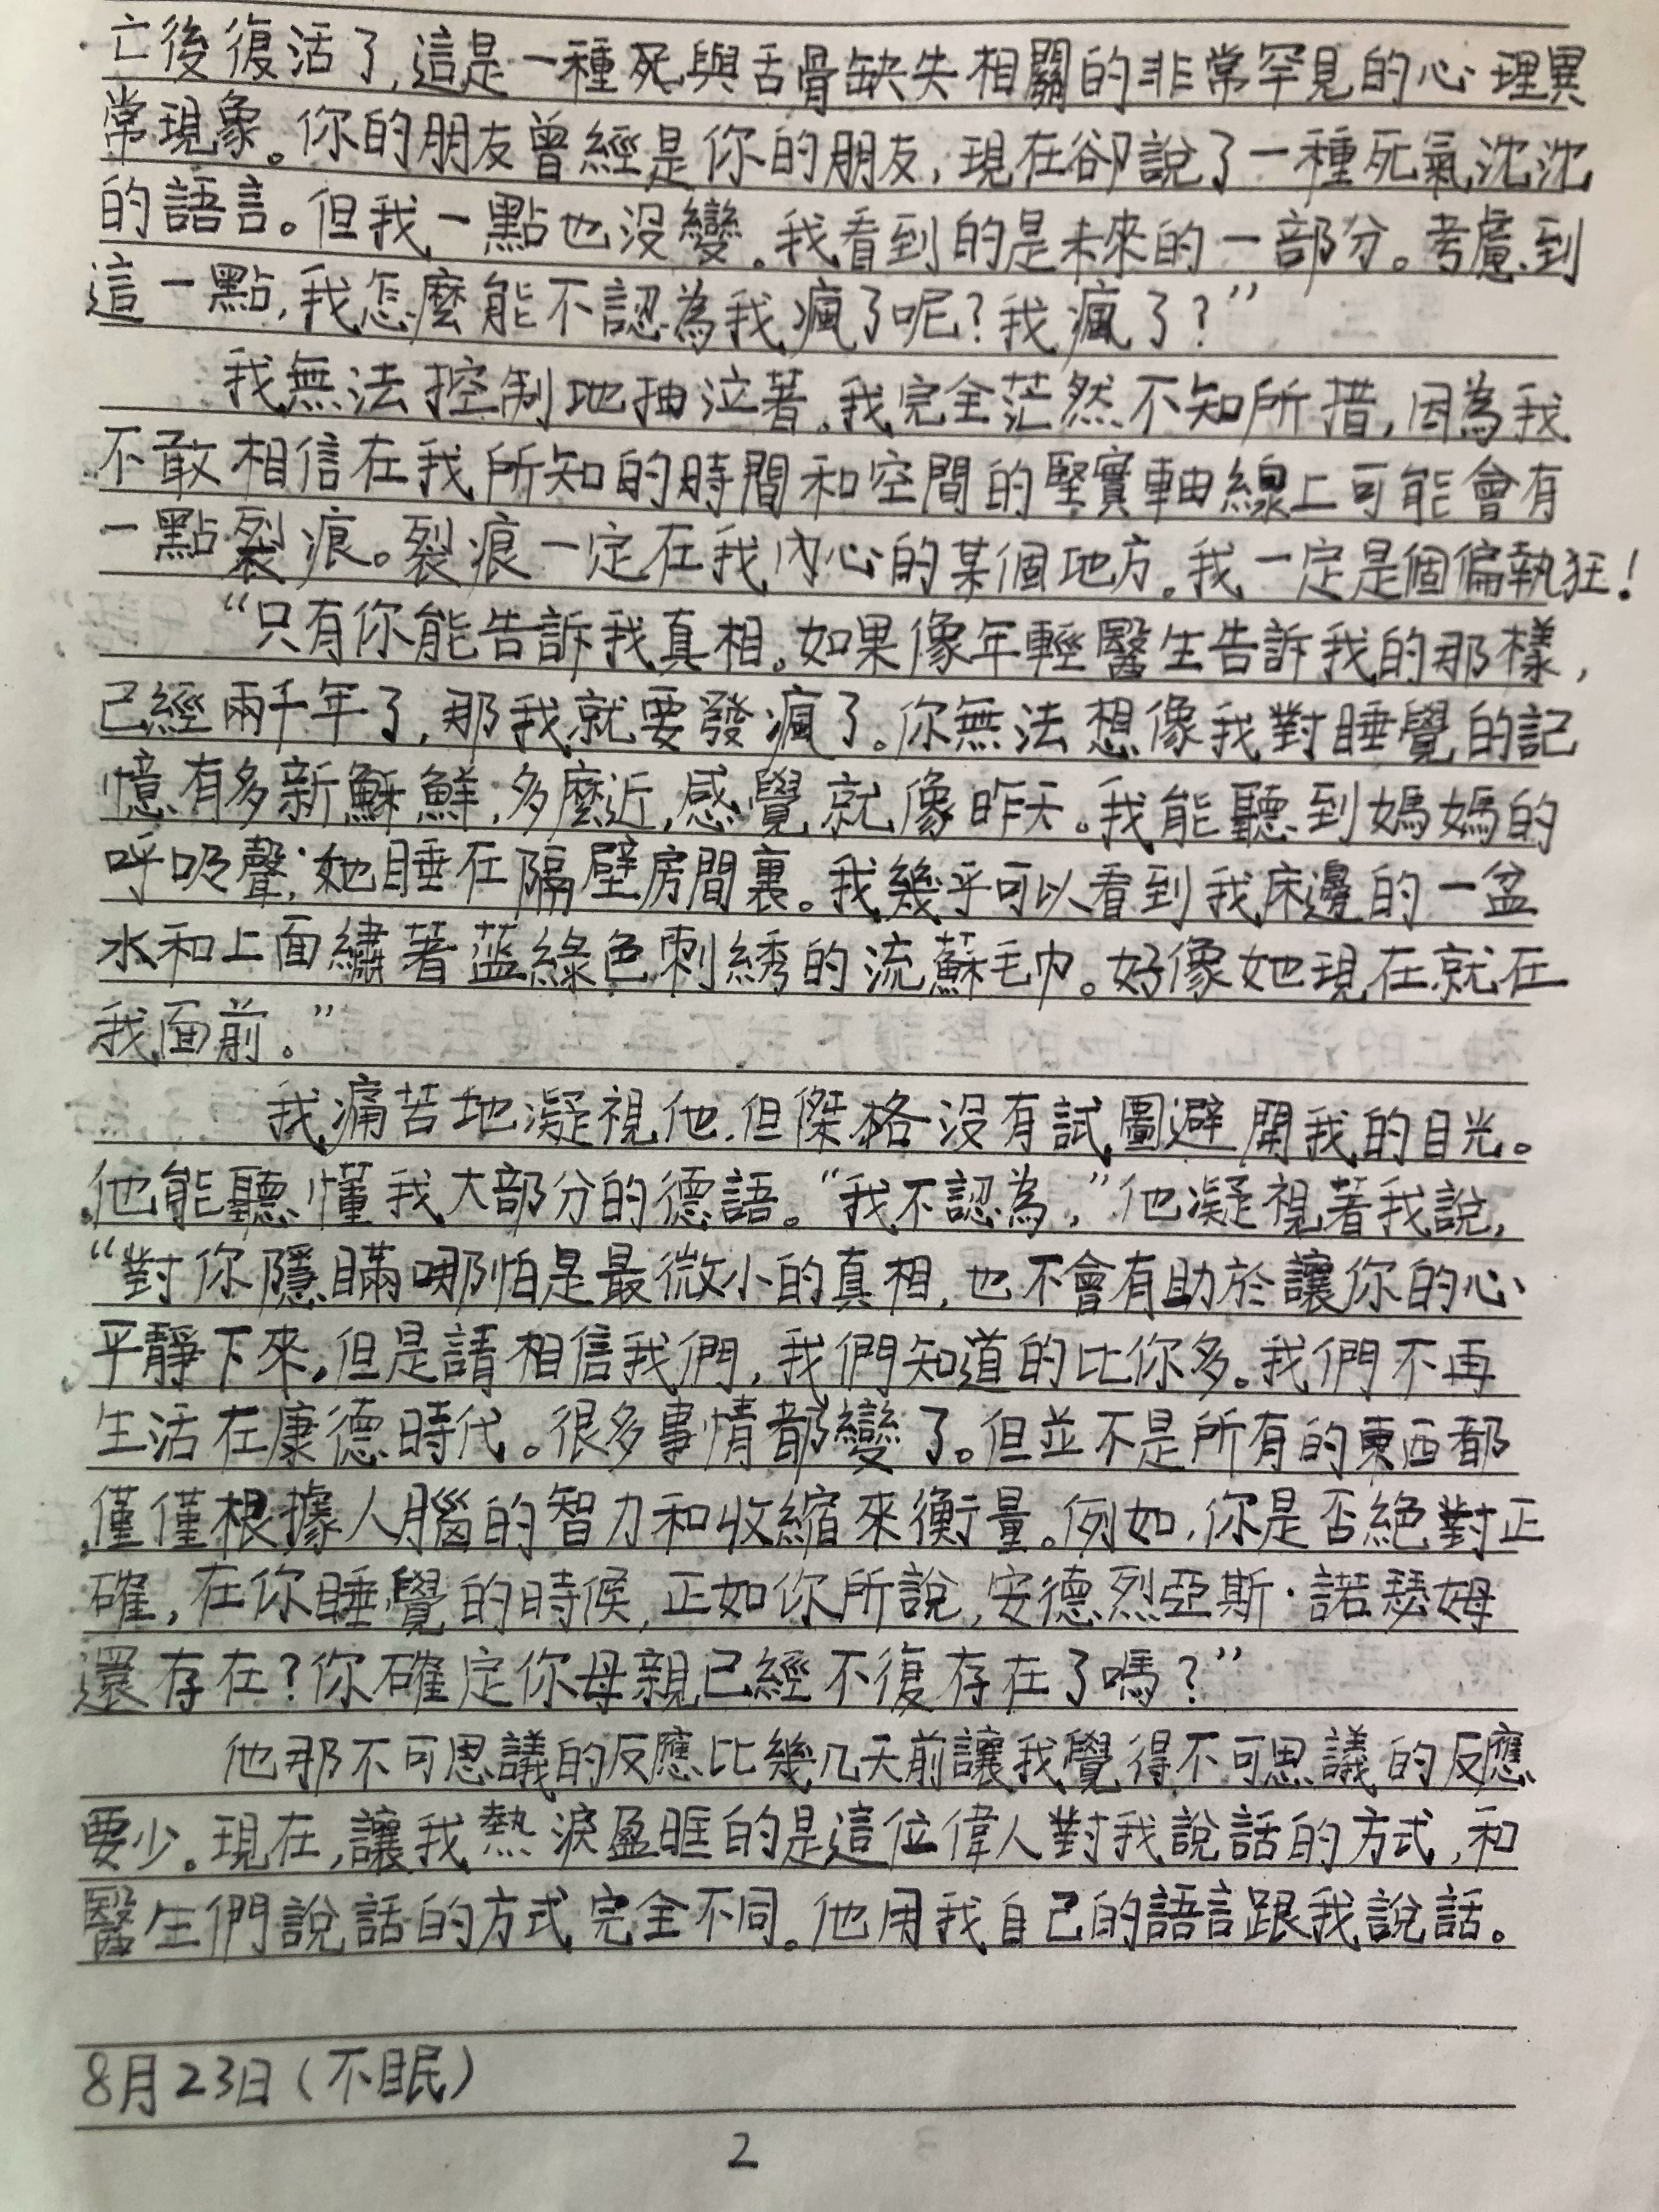 亡後復活了,這是一種死與舌骨缺失相關的非常罕見的心理異
常現象。你的朋友曾經是你的朋友,現在卻說了一種死氣沈沈
的語言。但我一點也沒變。我看到的是未來的一部分。考慮到
這一點,我怎麼能不認為我瘋了呢?我瘋了?”
我無法控制地抽泣著。我完全茫然不知所措,因為我
不敢相信在我所知的時間和空間的堅實軸線上可能會有
一點裂痕。裂痕一定在我內心的某個地方。我一定是個偏執狂!
“只有你能告訴我真相。如果像年輕醫生告訴我的那樣,
已經兩千年了,那我就要發瘋了。你無法想像我對睡覺的記
憶有多新穌鮮,多麼近,感覺就像昨天。我能聽到媽媽的
呼吸聲;她睡在隔壁房間裏。我幾乎可以看到我床邊的一盆
水和上面繡著蓝綠色刺綉的流蘇毛巾。好像她現在就在
我面前。”
我痛苦地凝視他.但傑格沒有試圖避開我的目光。
他能聽懂我大部分的德語。“我不認為,”他凝視著我說,
“對你隱瞞哪怕是最微小的真相,也不會有助於讓你的心
平靜下來。但是請相信我們,我們知道的比你多。我們不再
生活在康德時代。很多事情都變了。但並不是所有的東西都
僅僅根據人腦的智力和收縮來衡量。例如,你是否絕對正
確,在你睡覺的時候,正如你所說,安德烈亞斯·諾瑟姆
還存在?你確定你母親已經不復存在了嗎?”
他那不可思議的反應比幾几天前讓我覺得不可思議的反應
要少。現在,讓我熱淚盈眶的是這位偉人對我說話的方式,和
醫生們說話的方式完全不同。他用我自己的語言跟我說話。
8月23日(不眠)
2